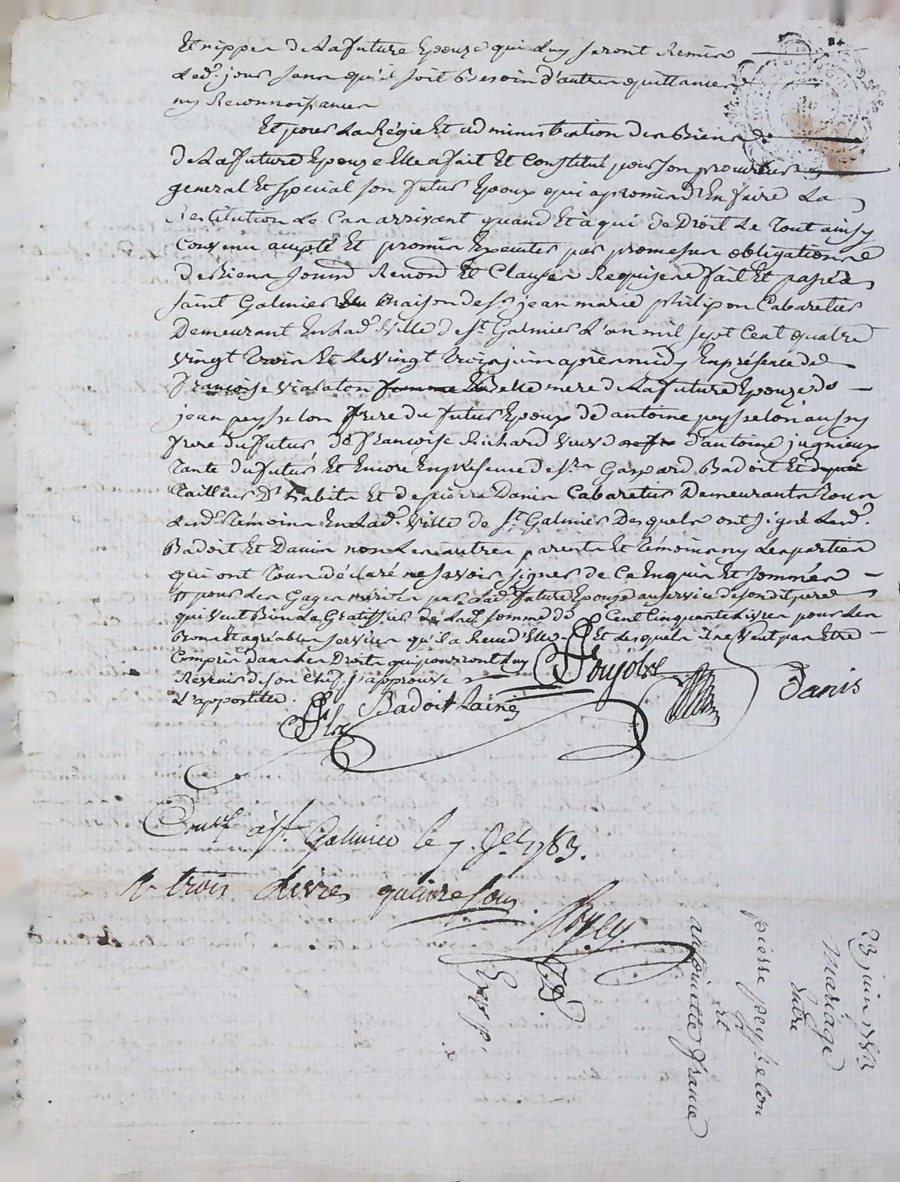 Et nippes de La future Epouze qui Luy seront Remis
Led.^t jour sans qu'il soit Besoin d'autres quittances
ny Reconnoissances
Et pour La Régie Et administration des Biens
de La future Epouze Elle a fait Et Constitué pour son procureur
general Et special son futur Epoux qui a promis d'En faire La
restitution Le Cas arrivant quand Et à qui de Droit Le Tout ainsy
convenu accepté Et promis Executer par promesses obligations
de Biens soumo Renond Et Clauses Requises fait Et passé à
saint Galmier maison de s.^r jean marie philipon Cabaretier
Demeurant En Lad.^e Ville de S.^t Galmier L'an mil sept Cent quatre
vingt trois Et Le vingt trois juin apres midy En présence de
françoise vialaton Belle mere de La future Epouze de
jean peysselon frere du futur Epoux de antoine peysselon aussy
frere du futur de françoise Richard veuve d'antoine jugnieux
Tante du futur Et Encore En présence de s.^r Gaspard Badoit
Tailleur d'habits Et de pierre Danis Cabaretier Demeurants Tous
Lesd.^s témoins En Lad.^e Ville de S.^t Galmier Desquels ont signé Lesd.^s
Badoit Et Danis non Les autres parents Et témoins ny Les parties
qui ont Tous déclaré ne savoir signer de Ce Enquis Et sommés
pour Les Gages mérités par Lad.^e future Epouze au service de son d.^t pere
qui veut Bien La Gratiffier de Lad.^e somme de Cent Cinquante Livres pour Les
Bons Et agréables services qu'il a Reçus d'Elle Et Lesquels il ne veut pas Etre
Compris dans Les Droits qui pourront Luy
Revenir de son Chef j'approuve
L'appostille
Badoit Lainé
Danis
à S.^t Galmier le 7. j.^et 1783.
R. trois Livres quinze sous
23 juin 1783
Mariage
Entre
pierre peysselon
Et
antoinette france
Exp.